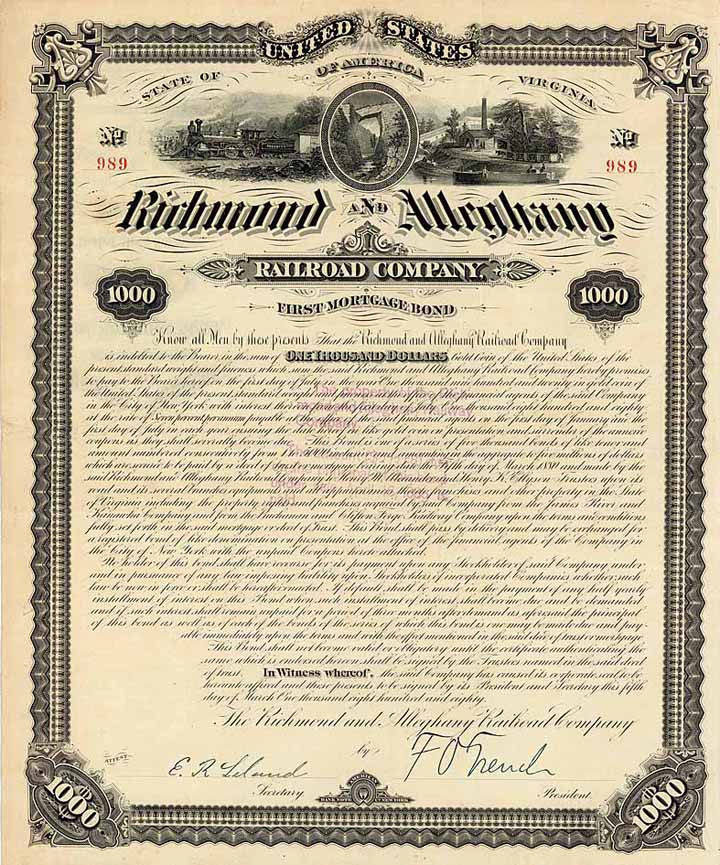 UNITED STATES
OF AMERICA
STATE OF VIRGINIA
No 989
No 989
Richmond AND Alleghany
RAILROAD COMPANY
1000
1000
FIRST MORTGAGE BOND
Know all Men by these presents That the Richmond and Alleghany Railroad Company
is indebted to the Bearer in the sum of ONE THOUSAND DOLLARS Gold Coin of the United States of the
present standard weight and fineness which sum the said Richmond and Alleghany Railroad Company hereby promises
to pay to the Bearer hereof on the first day of July in the year One thousand nine hundred and twenty in gold coin of
the United States of the present standard weight and fineness at the office of the financial agents of the said Company
in the City of New York with interest thereon from the first day of July One thousand eight hundred and eighty
at the rate of per cent per annum payable at the office of the said financial agents on the first day of January and the
first day of July in each year ensuing the date hereof in like gold coin on presentation and surrender of the annexed
coupons as they shall severally become due. This Bond is one of a series of five thousand bonds of like tenor and
amount numbered consecutively from 1 to 5000 inclusive and amounting in the aggregate to five millions of dollars
which are secured to be paid by a deed of trust or mortgage bearing date the fifth day of March 1880 and made by the
said Richmond and Alleghany Railroad Company to Henry and Henry K. Ellyson Trustees upon its
road and its several branches equipment and all appurtenances thereof franchises and other property in the State
of Virginia including the property rights and franchises acquired by said Company from the James River and
Kanawha Company and from the Buchanan and Clifton Forge Railway Company upon the terms and conditions
fully set forth in the said mortgage or deed of trust. This Bond shall pass by delivery and may be exchanged for
a registered bond of like denomination on presentation at the office of the financial agents of the Company in
the City of New York with the unpaid Coupons hereto attached.
No holder of this bond shall have recourse for its payment upon any Stockholder of said Company under
and in pursuance of any law imposing liability upon Stockholders of incorporated Companies whether such
law be now in force or shall be hereafter enacted. If default shall be made in the payment of any half yearly
installment of interest on this Bond when such installment of interest shall become due and be demanded
and if such interest shall remain unpaid for a period of three months after demand as aforesaid the principal
of this bond as well as of each of the bonds of the series of which this bond is one may be made due and pay-
able immediately upon the terms and with the effect mentioned in the said deed of trust or mortgage.
This Bond shall not become valid or obligatory until the certificate authenticating the
same which is endorsed hereon shall be signed by the Trustees named in the said deed
of trust. In Witness whereof, the said Company has caused its corporate seal to be
hereunto affixed and these presents to be signed by its President and Secretary this fifth
day of March One thousand eight hundred and eighty.
The Richmond and Alleghany Railroad Company
by
ATTEST
E. R. Leland
F O French
Secretary
President
AMERICAN
BANK NOTE CO. NEW YORK
1000
1000